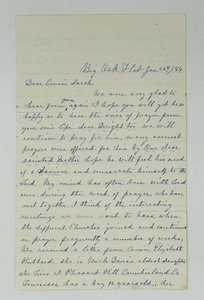 Big Oak Flat Jan 22nd/99
Dear Cousin Sarah
We were very glad to
hear from you again I hope you will yet be
happy as to hear the voice of prayer from
your son's lips dear Dwight too we will
continue to pray for him, many earnest
prayers were offered for him by Our dear
sainted Mother hope he will feel his need
of a Saviour and consecrate himself to the
Lord. My mind has often been with loved
ones during the week of prayer, who have
met together. I think of the interesting
meetings we were wont to have when
the different Churches joined and continued
in prayer frequently a number of weeks,
We received a letter from Cousin Elizabeth
Hubbard, she is Uncle Davis's oldest daughter
she lives at Pleasant Hill Cumberland Co
Tennessee has a boy 12 years old, She